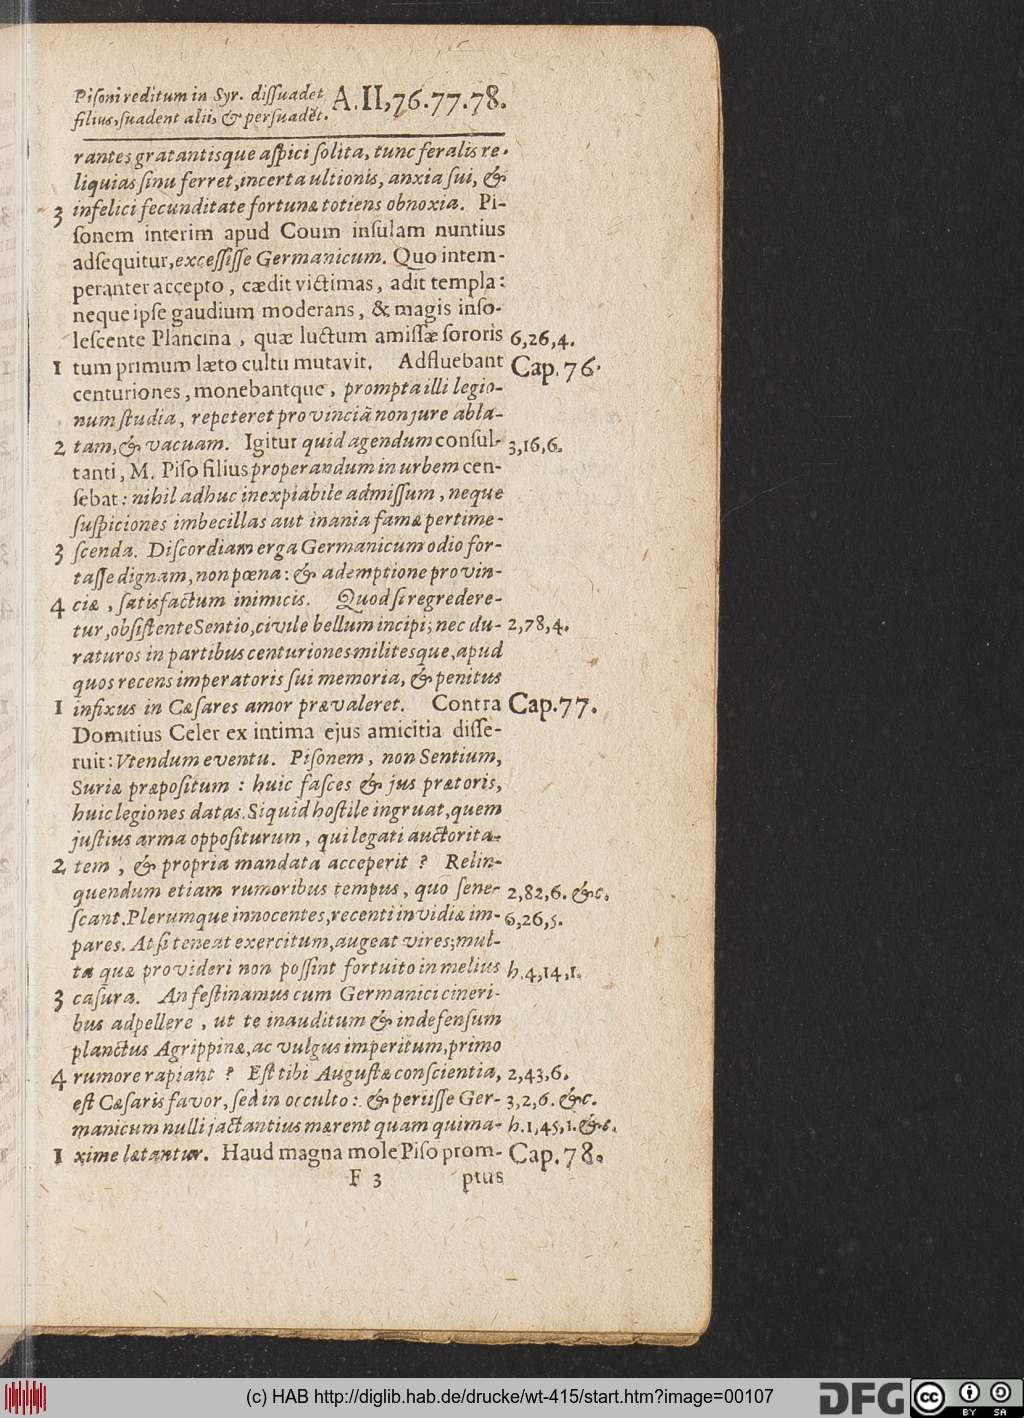 Piſoni reditum in Syr. diſſuadet A.II,76.77.78.
filius, ſuadent alii, & perſuadēt.
rantes gratantisque aſpici ſolita, tunc feralis re-
liquias ſinu ferret, incerta ultionis, anxia ſui, &
3 infelici fecunditate fortunæ totiens obnoxia. Pi-
ſonem interim apud Coum inſulam nuntius
adſequitur, exceſſiſſe Germanicum. Quo intem-
peranter accepto, cædit victimas, adit templa:
neque ipſe gaudium moderans, & magis inſo-
leſcente Plancina, quæ luctum amiſſæ ſororis 6,26,4.
1 tum primum læto cultu mutavit. Adfluebant Cap. 76.
centuriones, monebantque, prompta illi legio-
num ſtudia, repeteret provinciā non jure abla-
2 tam, & vacuam. Igitur quid agendum conſul- 3,16,6.
tanti, M. Piſo filius properandum in urbem cen-
ſebat: nihil adhuc inexpiabile admiſſum, neque
ſuſpiciones imbecillas aut inania famæ pertime-
3 ſcenda. Diſcordiam erga Germanicum odio for-
taſſe dignam, non pœna: & ademptione provin-
4 ciæ, ſatisfactum inimicis. Quod ſi regredere-
tur, obſiſtente Sentio, civile bellum incipi; nec du- 2,78,4.
raturos in partibus centuriones militesque, apud
quos recens imperatoris ſui memoria, & penitus
1 infixus in Cæſares amor prævaleret. Contra Cap.77.
Domitius Celer ex intima ejus amicitia diſſe-
ruit: Vtendum eventu. Piſonem, non Sentium,
Suriæ præpoſitum: huic faſces & jus prætoris,
huic legiones datas. Si quid hoſtile ingruat, quem
juſtius arma oppoſiturum, qui legati auctorita-
2 tem, & propria mandata acceperit? Relin-
quendum etiam rumoribus tempus, quo ſene- 2,82,6. &c.
ſcant. Plerumque innocentes, recenti invidiæ im- 6,26,5.
pares. At ſi teneat exercitum, augeat vires; mul-
ta quæ provideri non poſſint fortuito in melius h.4,14,1.
3 caſura. An feſtinamus cum Germanici cineri-
bus adpellere, ut te inauditum & indefenſum
planctus Agrippinæ, ac vulgus imperitum, primo
4 rumore rapiant? Eſt tibi Auguſtæ conſcientia, 2,43,6.
eſt Cæſaris favor, ſed in occulto: & periiſſe Ger- 3,2,6. &c.
manicum nulli jactantius mærent quam qui ma- h.1,45,1. &c.
1 xime lætantur. Haud magna mole Piſo prom- Cap.78.
F 3 ptus
(c) HAB http://diglib.hab.de/drucke/wt-415/start.htm?image=00107
DFG
cc BY SA